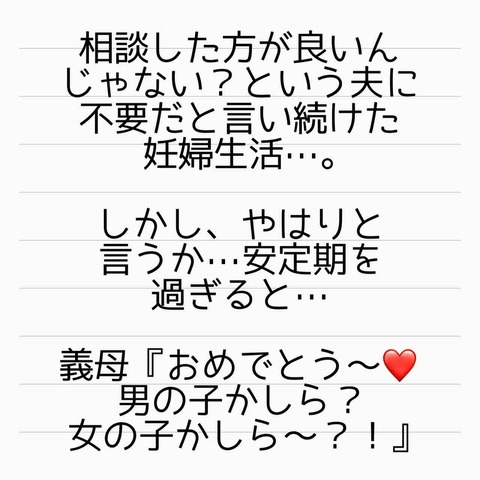 相談した方が良いん
じゃない？という夫に
不要だと言い続けた
妊婦生活…。
しかし、やはりと
言うか…安定期を
過ぎると…
義母『おめでとう〜❤️
男の子かしら？
女の子かしら〜？！』